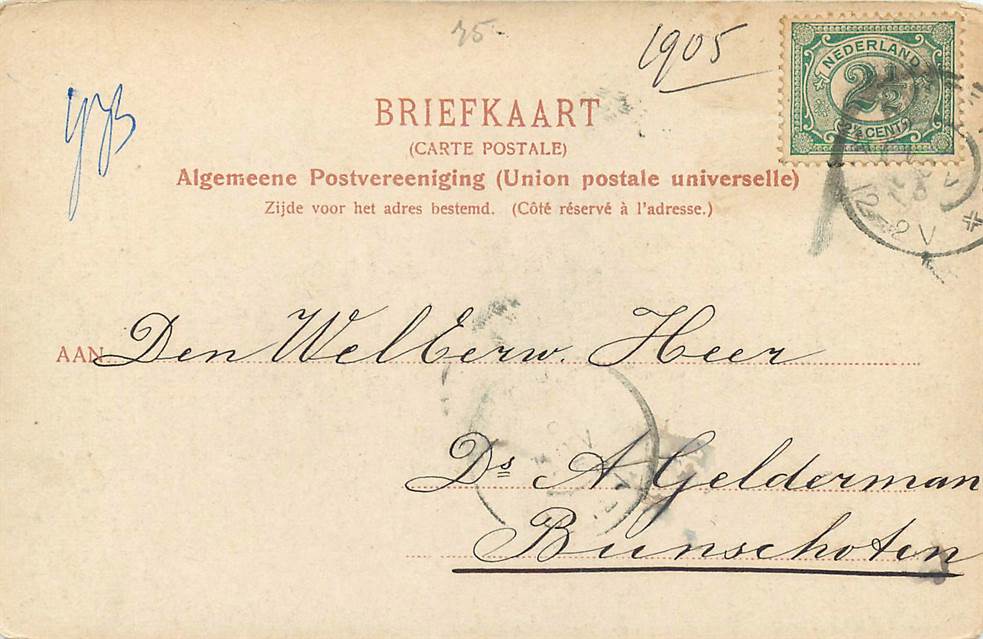 25.
1905
NEDERLAND
2½
2½ CENT
BRIEFKAART
(CARTE POSTALE)
Algemeene Postvereeniging (Union postale universelle)
Zijde voor het adres bestemd. (Côté réservé à l'adresse.)
12
2 V
AAN Den WelEerw. Heer
Ds A. Gelderman
Bunschoten